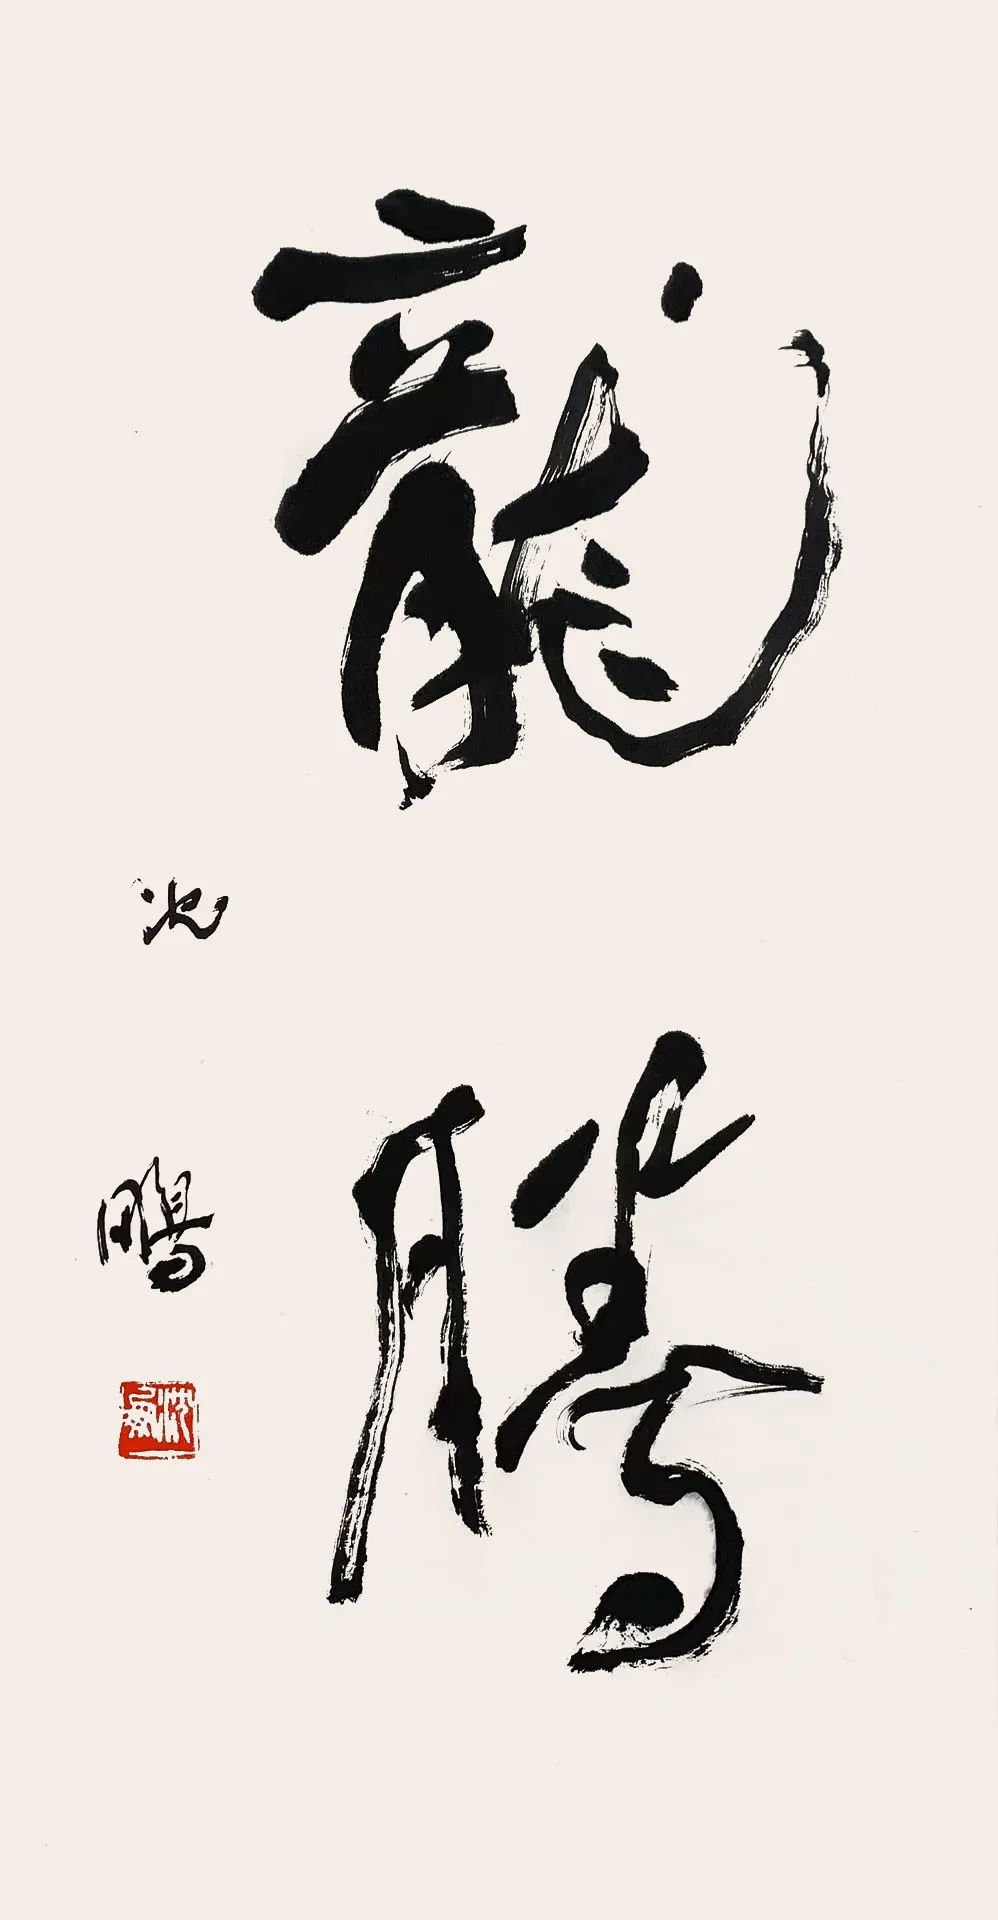 龍騰
沈鵬